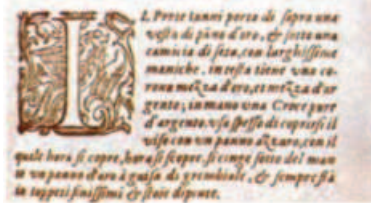 IL Prete Ianni porta di sopra una
vesta di páno d'oro, & sotto una
camicia di seta, con larghissime
maniche, in testa tiene vna co-
rona mezza d'oro, et mezza d'ar
gento; in mano vna Croce pure
d'argento. vsa spesso di coprirsi il
viso con vn panno azzuro, con il
quale hora si copre, hora si scopre, si cinge sotto del man
to vn panno d'oro à guisa di grembiale, & sempre stà
in tappeti finissimi & stoie dipinte.